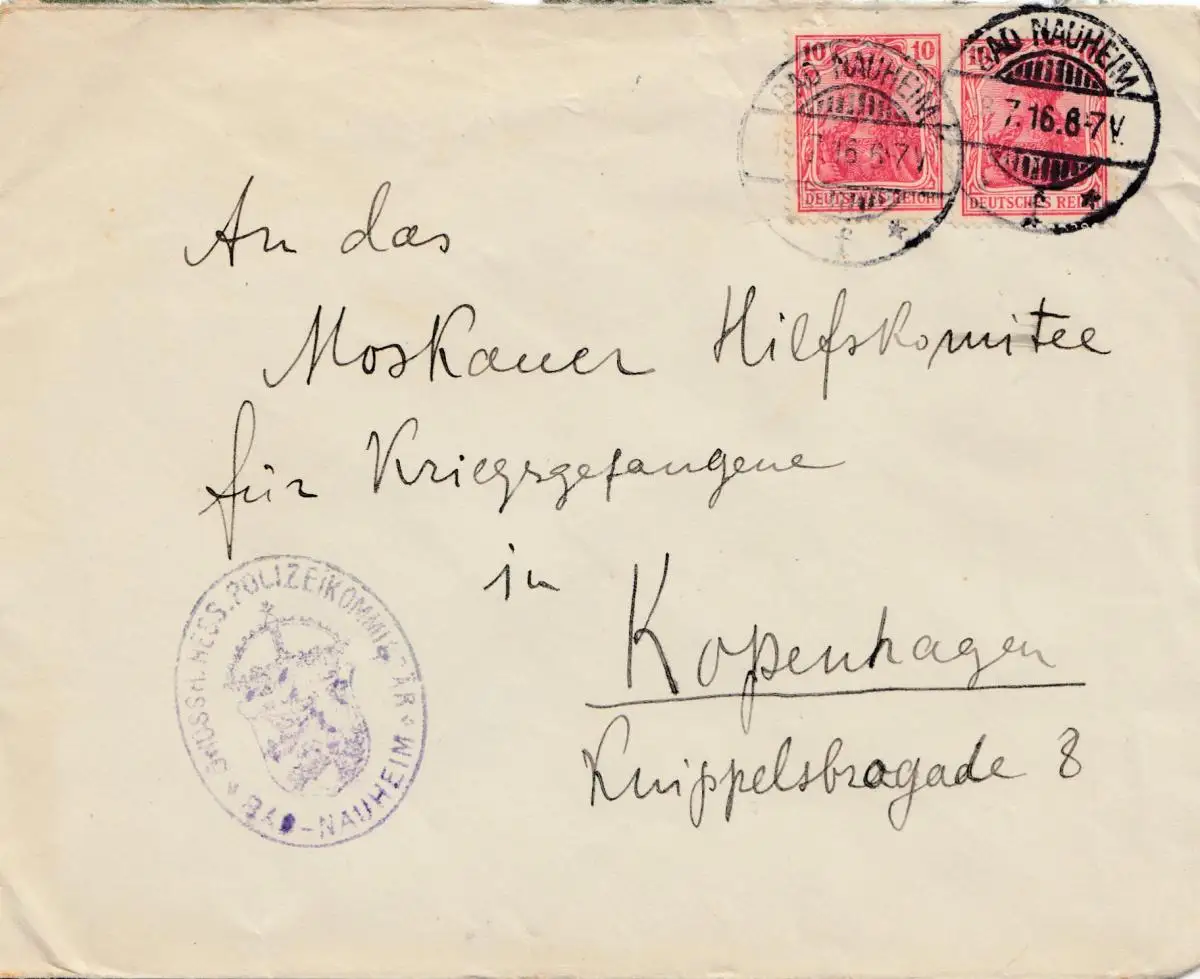 10 10
BAD NAUHEIM
7.16 6-7V
DEUTSCHES REICH
10
BAD NAUHEIM
7.16.6-7V.
DEUTSCHES REICH
An das
Moskauer Hilfskomitee
für Kriegsgefangene
in
Kopenhagen
Knippelsbrogade 8
GROSSH. HESS. POLIZEIKOMMISSÄR
BAD-NAUHEIM